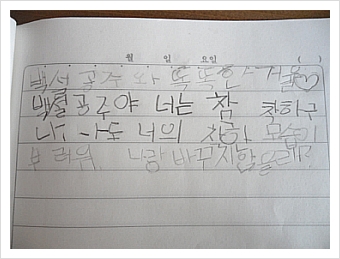 월 일 요일 ( )
백설공주와 똑똑한 거울♡
백설공주야 너는 참 착하구
나, 나도 너의 착한 모습이
부러워. 나랑 바꾸지 않을래?